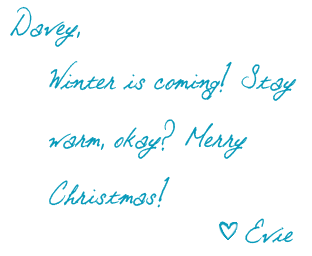 Davey,
Winter is coming! Stay
warm, okay? Merry
Christmas!
♡ Evie